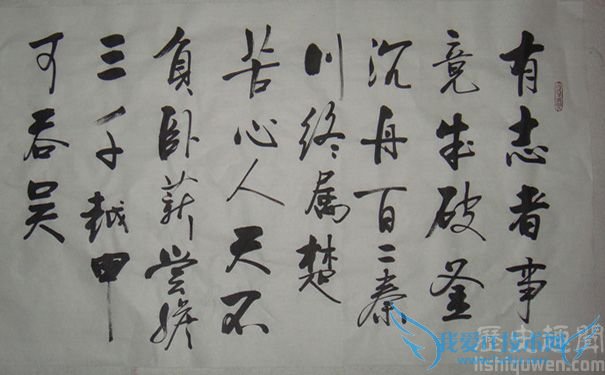 有志者事
竟成破釜
沉舟百二秦
川終属楚
苦心人天不
負卧薪尝膽
三千越甲
可吞吴
歷史趣聞
lishiquwen.com